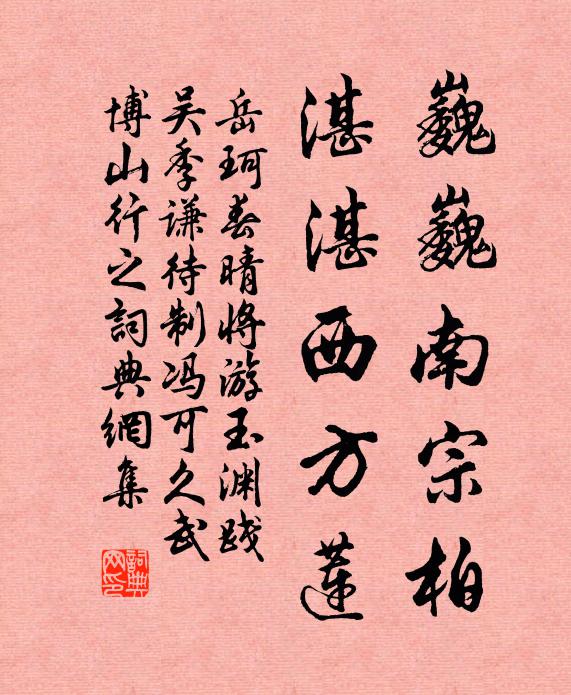 巍巍南宗柏
湛湛西方蓮
岳珂春晴将游玉渊践
吴季谦待制冯可久武
博山行之詞典網集
詞典網印